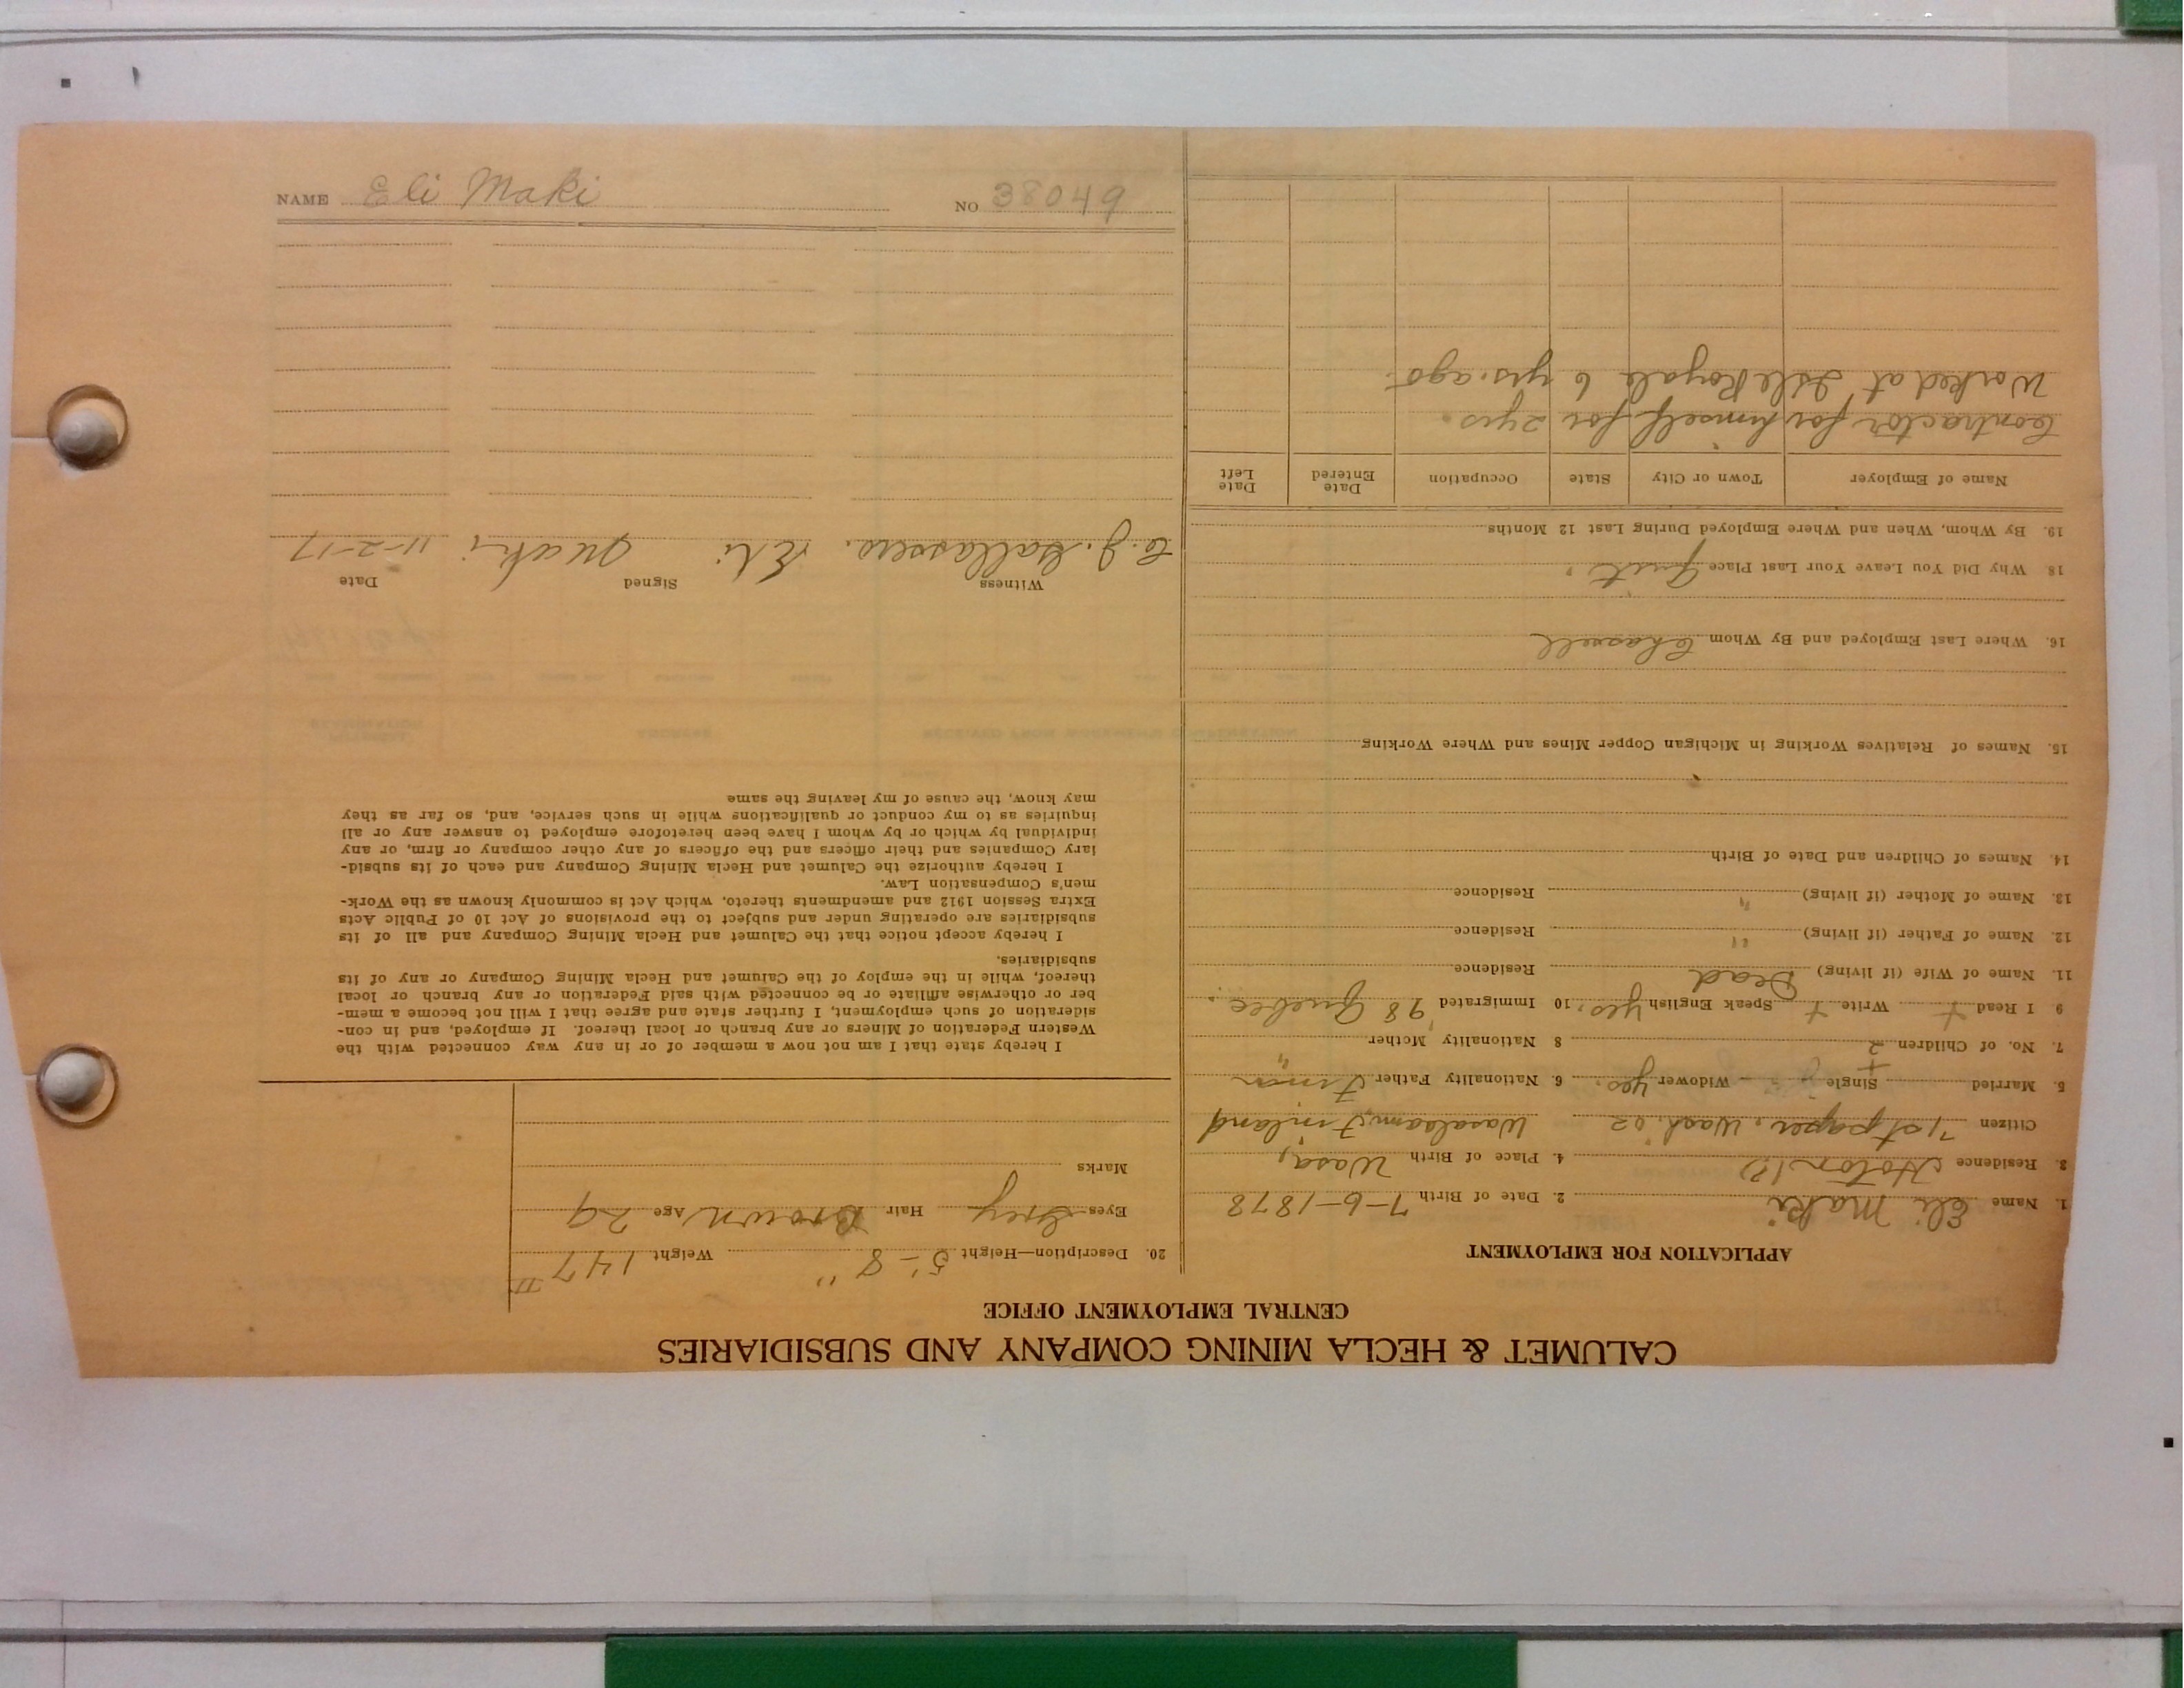 CALUMET & HECLA MINING COMPANY AND SUBSIDIARIES
CENTRAL EMPLOYMENT OFFICE
APPLICATION FOR EMPLOYMENT
1. Name Eli Maki 2. Date of Birth 7-6-1878
3. Residence Hoton (?) 4. Place of Birth Wasa,
Citizen "1st paper, Wash. 02 Wasalaam, Finland
5. Married Single Widower yes. 6. Nationality Father Finn
7. No. of Children 2 8 Nationality Mother "
9 I Read + Write + Speak English yes. 10 Immigrated '98 Quebec.
11. Name of Wife (if living) Dead Residence
12. Name of Father (if living) " Residence
13. Name of Mother (if living) " Residence
14. Names of Children and Date of Birth
15. Names of Relatives Working in Michigan Copper Mines and Where Working
16. Where Last Employed and By Whom Chassell
18. Why Did You Leave Your Last Place Quit.
19. By Whom, When and Where Employed During Last 12 Months
Name of Employer Town or City State Occupation Date Entered Date Left
Contractor for himself for 2 yrs.
Worked at Isle Royale 6 yrs. ago.
20. Description—Height 5'-8" Weight 147
Eyes Grey Hair Brown Age 29
Marks
I hereby state that I am not now a member of or in any way connected with the
Western Federation of Miners or any branch or local thereof. If employed, and in con-
sideration of such employment, I further state and agree that I will not become a mem-
ber or otherwise affiliate or be connected with said Federation or any branch or local
thereof, while in the employ of the Calumet and Hecla Mining Company or any of its
subsidiaries.
I hereby accept notice that the Calumet and Hecla Mining Company and all of its
subsidiaries are operating under and subject to the provisions of Act 10 of Public Acts
Extra Session 1912 and amendments thereto, which Act is commonly known as the Work-
men's Compensation Law.
I hereby authorize the Calumet and Hecla Mining Company and each of its subsid-
iary Companies and their officers and the officers of any other company or firm, or any
individual by which or by whom I have been heretofore employed to answer any or all
inquiries as to my conduct or qualifications while in such service, and, so far as they
may know, the cause of my leaving the same
Witness Signed Date
C. J. Eli Maki 11-2-17
NAME Eli Maki NO 38049